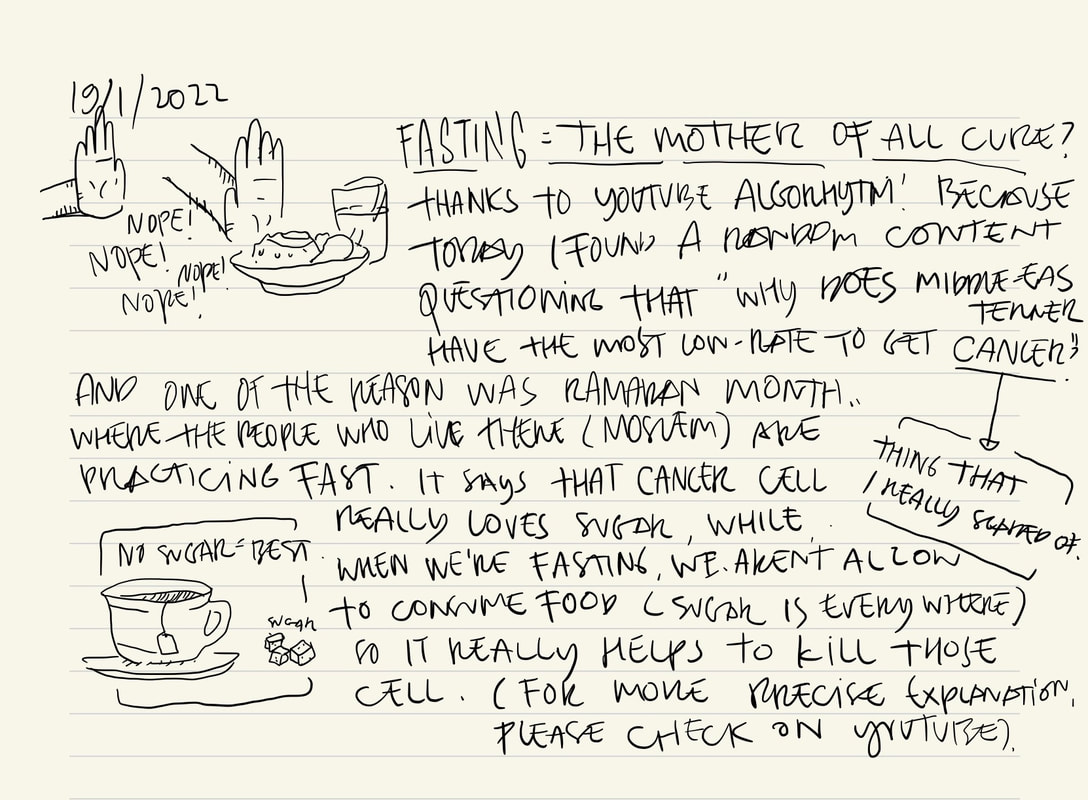 19/1/2022
FASTING = THE MOTHER OF ALL CURE?
NOPE!
NOPE!
NOPE!
NOPE!
THANKS TO YOUTUBE ALGORHYTM! BECAUSE
TODAY I FOUND A RANDOM CONTENT
QUESTIONING THAT "WHY DOES MIDDLE-EAS
TERNER
HAVE THE MOST LOW-RATE TO GET CANCER"
AND ONE OF THE REASON WAS RAMADAN MONTH..
WHERE THE PEOPLE WHO LIVE THERE (MOSLEM) ARE
PRACTICING FAST. IT SAYS THAT CANCER CELL
REALLY LOVES SUGAR, WHILE
WHEN WE'RE FASTING, WE ARENT ALLOW
TO CONSUME FOOD (SUGAR IS EVERYWHERE)
SO IT REALLY HELPS TO KILL THOSE
CELL. (FOR MORE PRECISE EXPLANATION,
PLEASE CHECK ON YOUTUBE).
THING THAT
I REALLY SCARED OF.
NO SUGAR = BEST
SUGAR